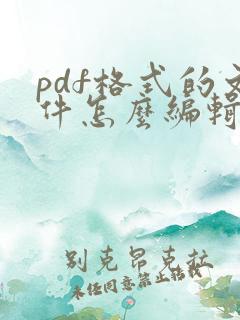 pdf格式的文
件怎麼編輯
别克昂克拉
未经同意禁止转载